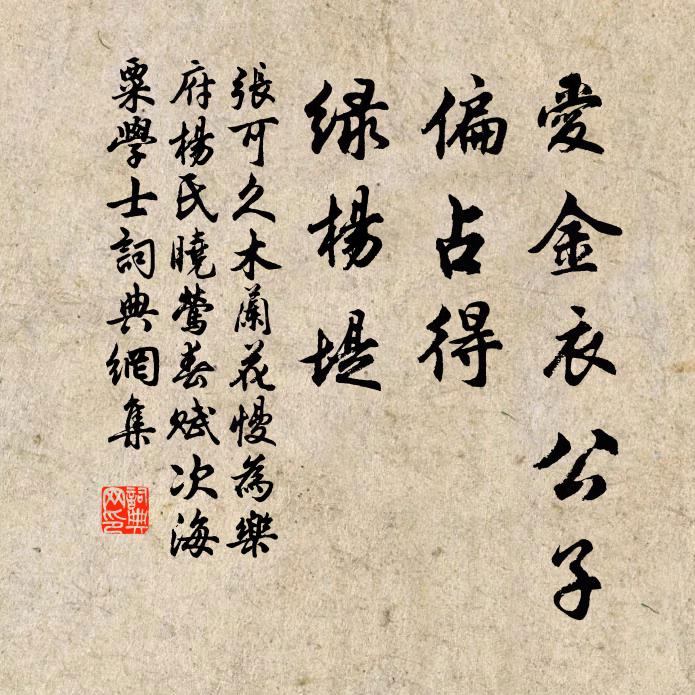 愛金衣公子
偏占得
绿楊堤
張可久木蘭花慢為樂
府楊氏曉鶯春賦次海
粟學士詞典網集
詞典
网印